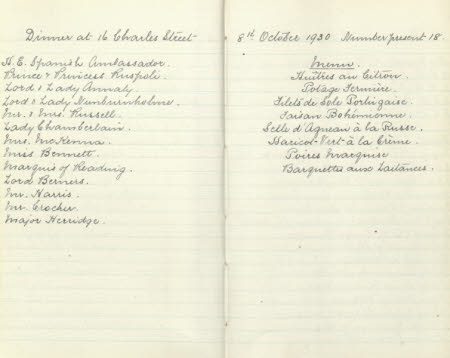 Dinner at 16 Charles Street
H.E. Spanish Ambassador.
Prince & Princess Ruspoli.
Lord & Lady Annaly.
Lord & Lady Nunburnholme.
Mr. & Mrs. Russell.
Lady Chamberlain.
Mrs. McKenna.
Miss Bennett.
Marquis of Reading.
Lord Berners.
Mr. Harris.
Mr. Crocker.
Major Herridge.
8th October 1930 Number present 18.
Menu.
Huîtres au Citron.
Potage Fermière.
Filets de Sole Portugaise.
Faisan Bohémienne.
Selle d'Agneau à la Russe.
Haricot-Vert à la Crème.
Poires Marquise.
Barquettes aux Laitances.